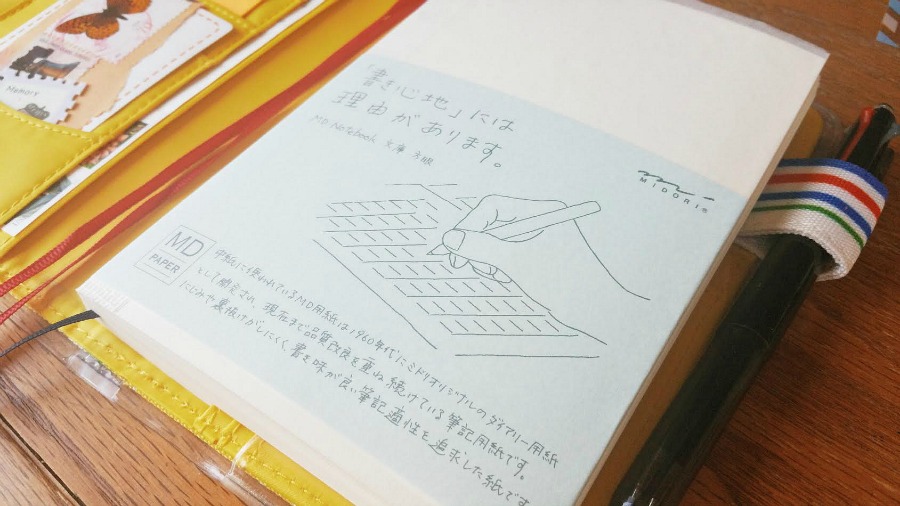 Memory
「書き心地」には
理由があります。
MD Notebook 文庫 方眼
MIDORI®
MD
PAPER
中紙に使われているMD用紙は1960年代にミドリオリジナルのダイアリー用紙
として開発され、現在まで品質改良を重ね続けている筆記用紙です。
にじみや裏抜けがしにくく、書き味が良い筆記適性を追求した紙です